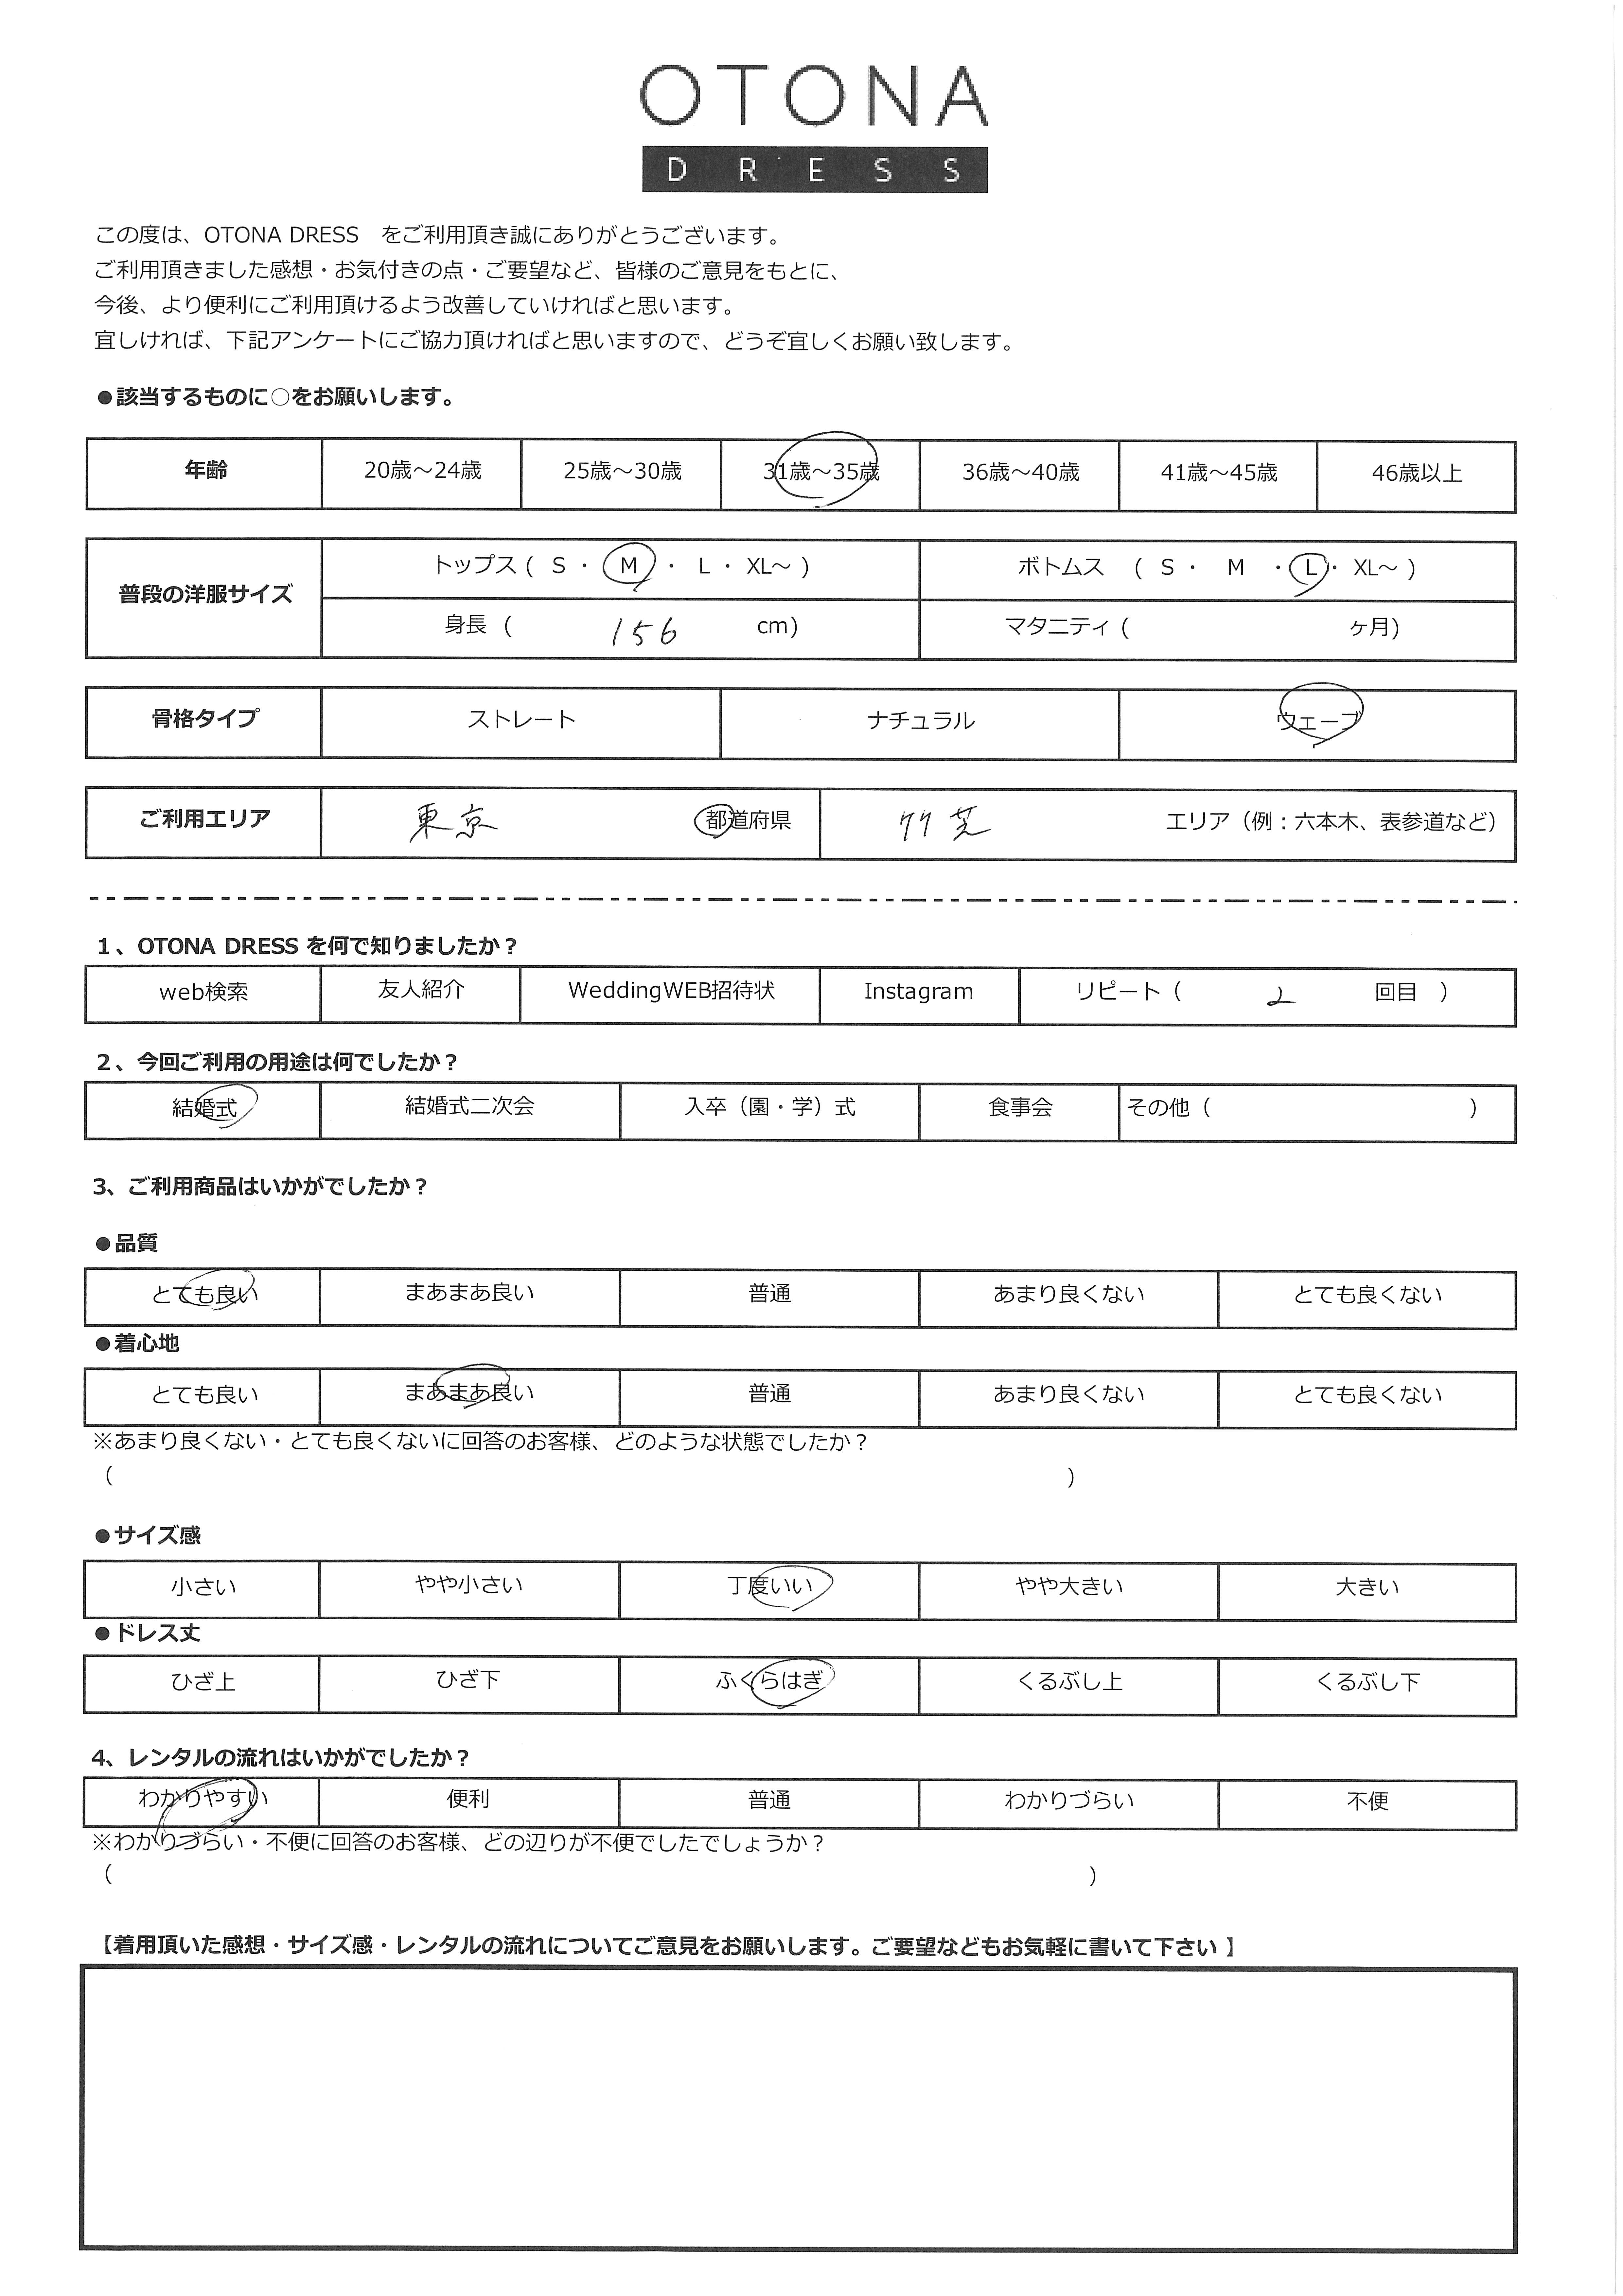 OTONA
DRESS
この度は、OTONA DRESS　をご利用頂き誠にありがとうございます。
ご利用頂きました感想・お気付きの点・ご要望など、皆様のご意見をもとに、
今後、より便利にご利用頂けるよう改善していければと思います。
宜しければ、下記アンケートにご協力頂ければと思いますので、どうぞ宜しくお願い致します。
●該当するものに○をお願いします。
年齢 20歳～24歳 25歳～30歳 31歳～35歳 36歳～40歳 41歳～45歳 46歳以上
普段の洋服サイズ トップス ( S ・ M ・ L ・ XL～ ) ボトムス ( S ・ M ・ L ・ XL～ )
身長 ( 156 cm) マタニティ ( ヶ月)
骨格タイプ ストレート ナチュラル ウェーブ
ご利用エリア 東京 都道府県 竹芝 エリア（例：六本木、表参道など）
1、OTONA DRESS を何で知りましたか？
web検索 友人紹介 WeddingWEB招待状 Instagram リピート（ 2 回目 ）
2、今回ご利用の用途は何でしたか？
結婚式 結婚式二次会 入卒（園・学）式 食事会 その他（ ）
3、ご利用商品はいかがでしたか？
●品質
とても良い まあまあ良い 普通 あまり良くない とても良くない
●着心地
とても良い まあまあ良い 普通 あまり良くない とても良くない
※あまり良くない・とても良くないに回答のお客様、どのような状態でしたか？
（ ）
●サイズ感
小さい やや小さい 丁度いい やや大きい 大きい
●ドレス丈
ひざ上 ひざ下 ふくらはぎ くるぶし上 くるぶし下
4、レンタルの流れはいかがでしたか？
わかりやすい 便利 普通 わかりづらい 不便
※わかりづらい・不便に回答のお客様、どの辺りが不便でしたでしょうか？
（ ）
【着用頂いた感想・サイズ感・レンタルの流れについてご意見をお願いします。ご要望などもお気軽に書いて下さい 】